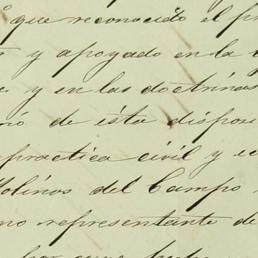 que reconocido el pr
y apoyado en la
y en las doctrinas
de esta dispos
practica civil y ec
Molinos del Campo
mo representante de